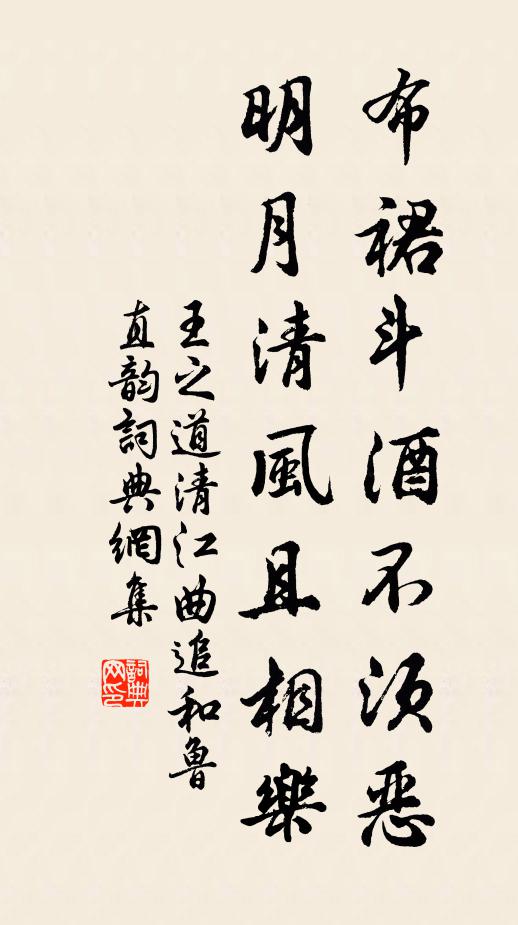 布裙斗酒不須惡
明月清風且相樂
王之道清江曲追和魯
直韵詞典網集
詞典网印